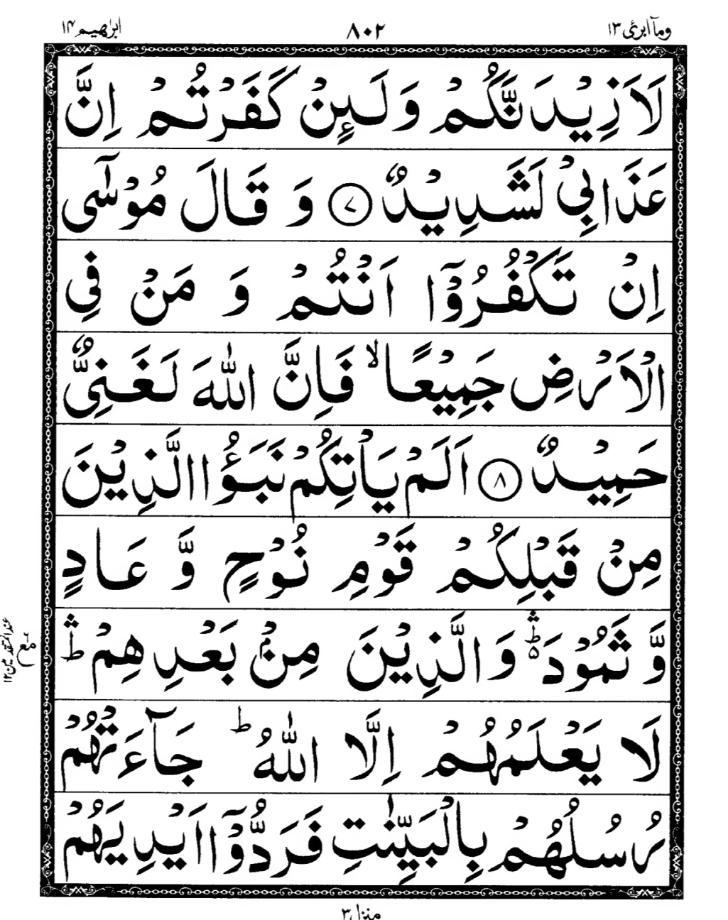 ابرٰهيم ۱۴ ۸۰۲ وما ابرئ ۱۳
لَاَزِيْدَنَّكُمْ وَلَئِنْ كَفَرْتُمْ اِنَّ
عَذَابِيْ لَشَدِيْدٌ ﴿۷﴾ وَ قَالَ مُوْسٰۤى
اِنْ تَكْفُرُوْۤا اَنْتُمْ وَ مَنْ فِي
الْاَرْضِ جَمِيْعًا ۙ فَاِنَّ اللّٰهَ لَغَنِيٌّ
حَمِيْدٌ ﴿۸﴾ اَلَمْ يَاْتِكُمْ نَبَؤُا الَّذِيْنَ
مِنْ قَبْلِكُمْ قَوْمِ نُوْحٍ وَّ عَادٍ
وَّ ثَمُوْدَ ۛؕ وَالَّذِيْنَ مِنْۢ بَعْدِهِمْ ۛؕ
لَا يَعْلَمُهُمْ اِلَّا اللّٰهُ ؕ جَآءَتْهُمْ
رُسُلُهُمْ بِالْبَيِّنٰتِ فَرَدُّوْۤا اَيْدِيَهُمْ
منزل ۳